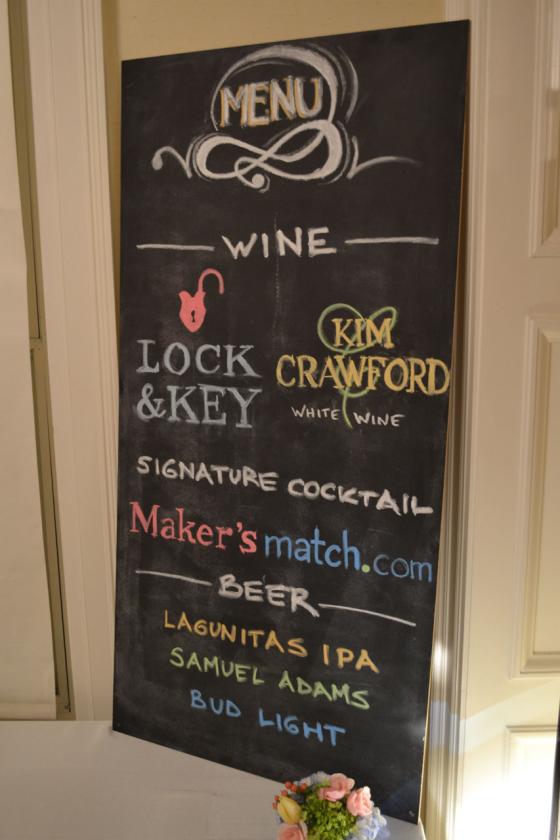 MENU
WINE
LOCK
&KEY
KIM
CRAWFORD
WHITE WINE
SIGNATURE COCKTAIL
Maker's match.com
BEER
LAGUNITAS IPA
SAMUEL ADAMS
BUD LIGHT